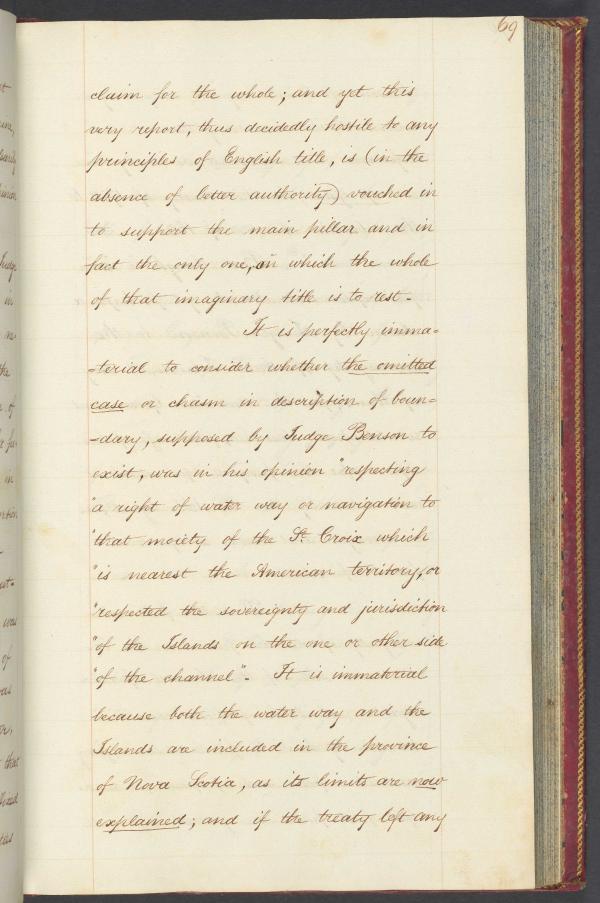 69
claim for the whole; and yet this
very report, thus decidedly hostile to any
principles of English title, is (in the
absence of better authority) vouched in
to support the main pillar and in
fact the only one, on which the whole
of that imaginary title is to rest.
It is perfectly imma=
=terial to consider whether the omitted
case or chasm in description of boun=
=dary, supposed by Judge Benson to
exist, was in his opinion "respecting
"a right of water way or navigation to
"that moiety of the St. Croix which
"is nearest the American territory, or
"respected the sovereignty and jurisdiction
"of the Islands on the one or other side
"of the channel". It is immaterial
because both the water way and the
Islands are included in the province
of Nova Scotia, as its limits are now
explained; and if the treaty left any